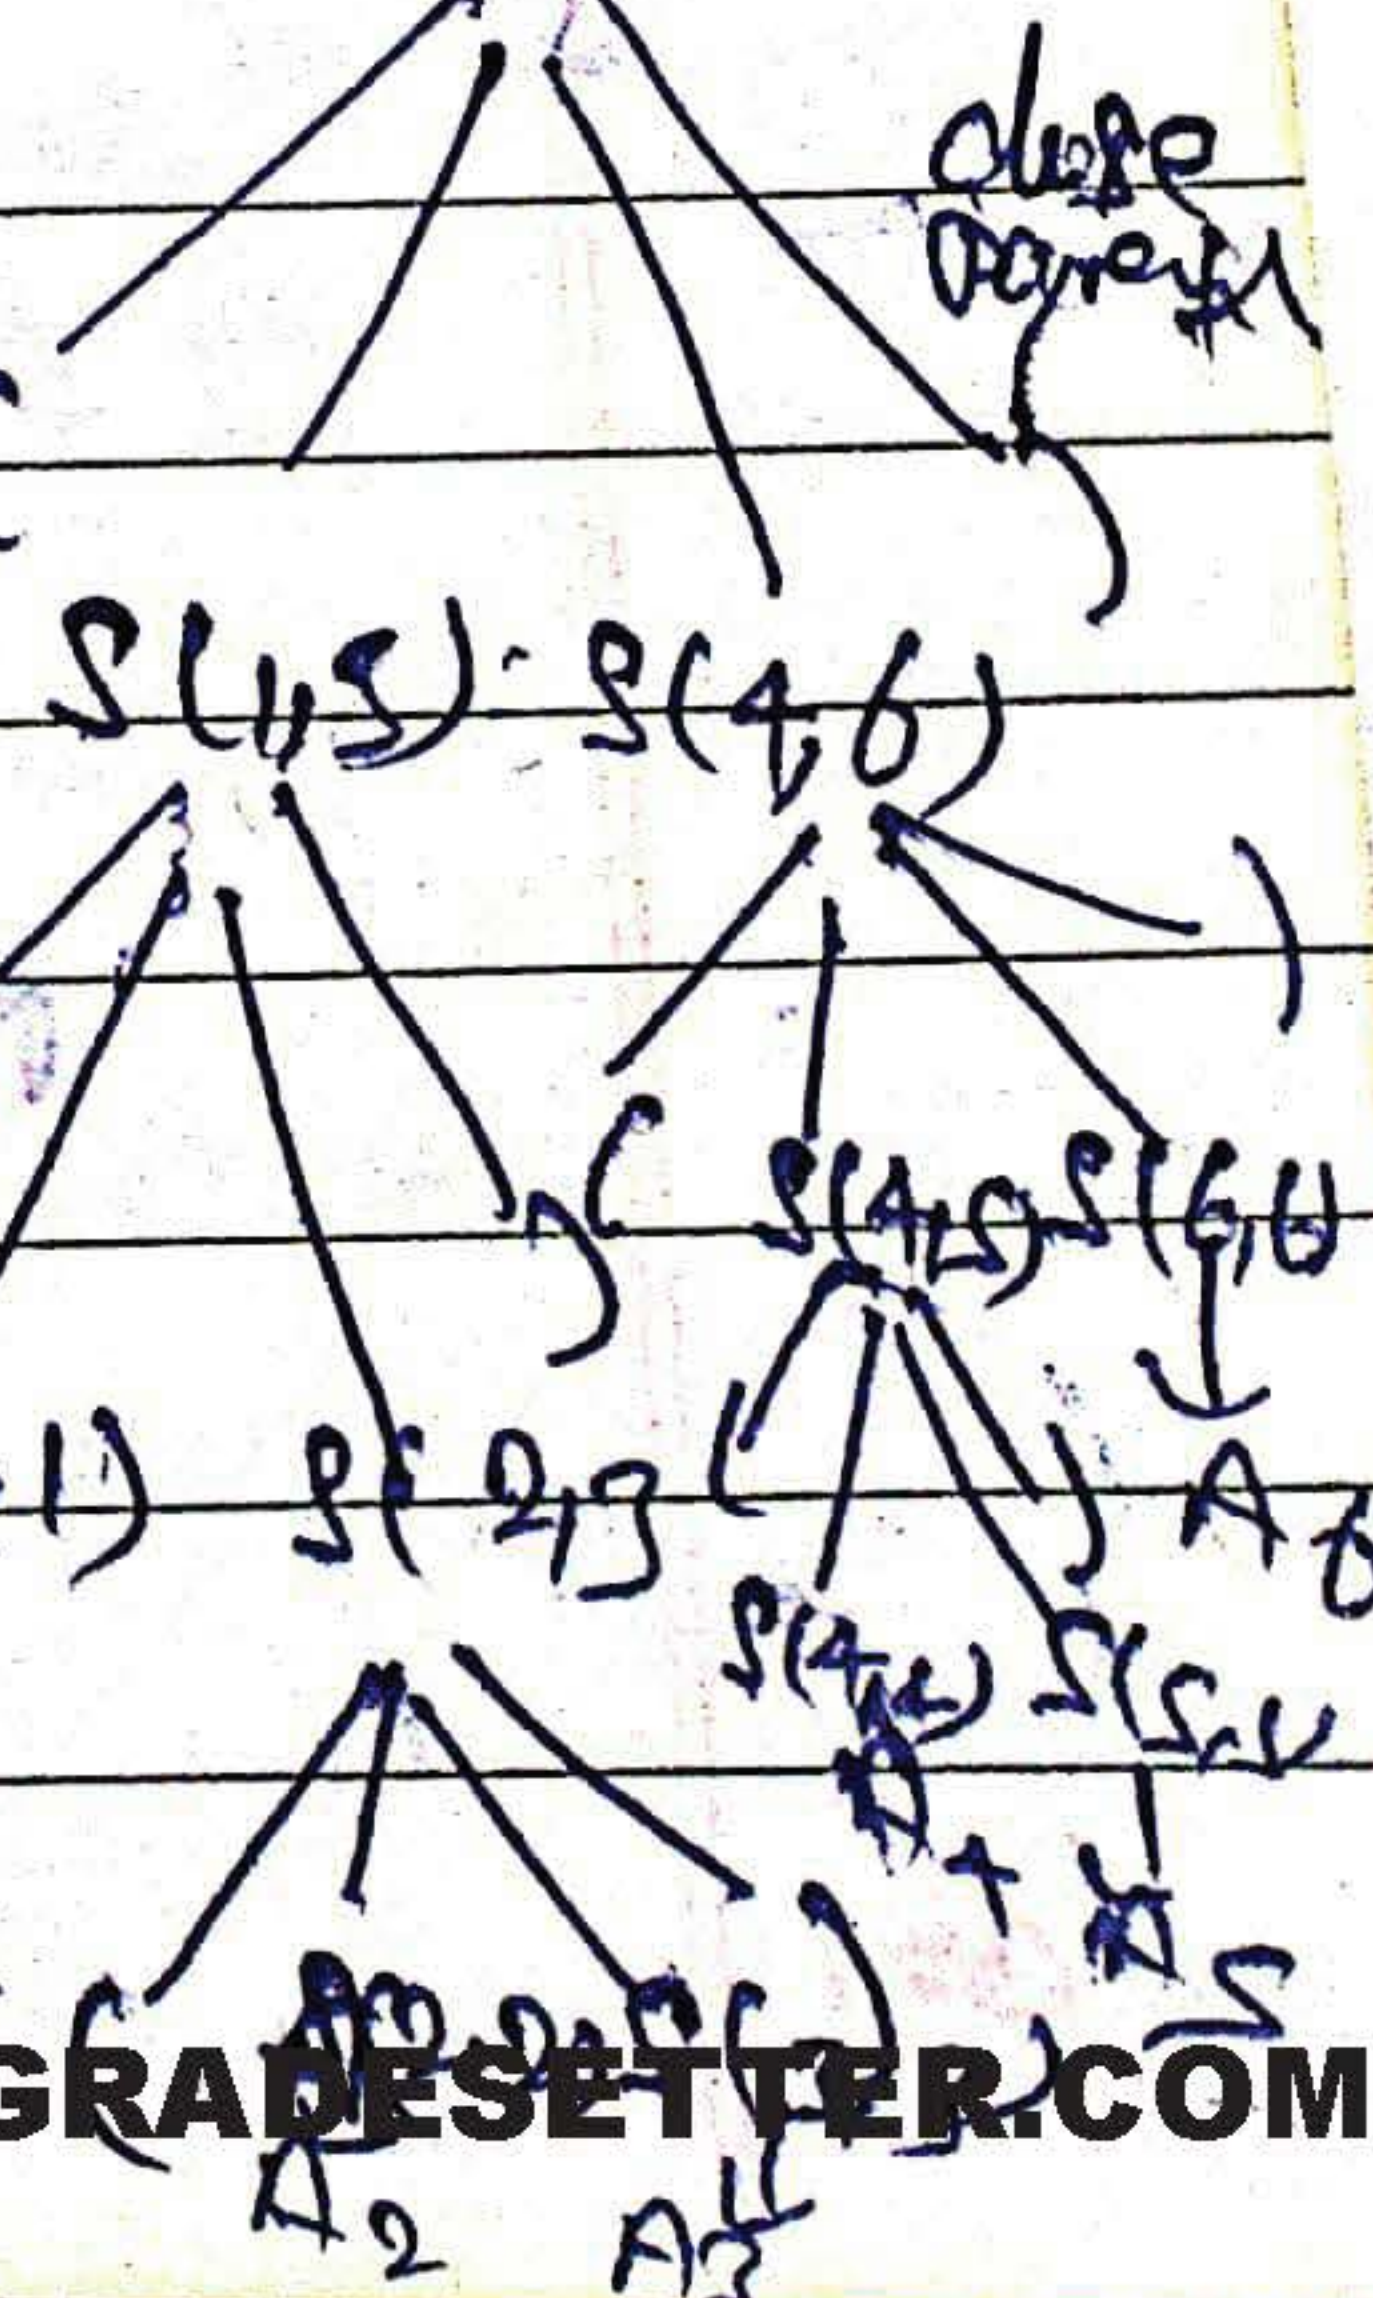 close
S(1,5) S(4,6)
( S(4,5) S(6,6)
)
1) S(2,3 ( ) A6
S(4,4) S(5,5)
A4
A5
( ) S( )
GRADESETTER.COM
A2 A3